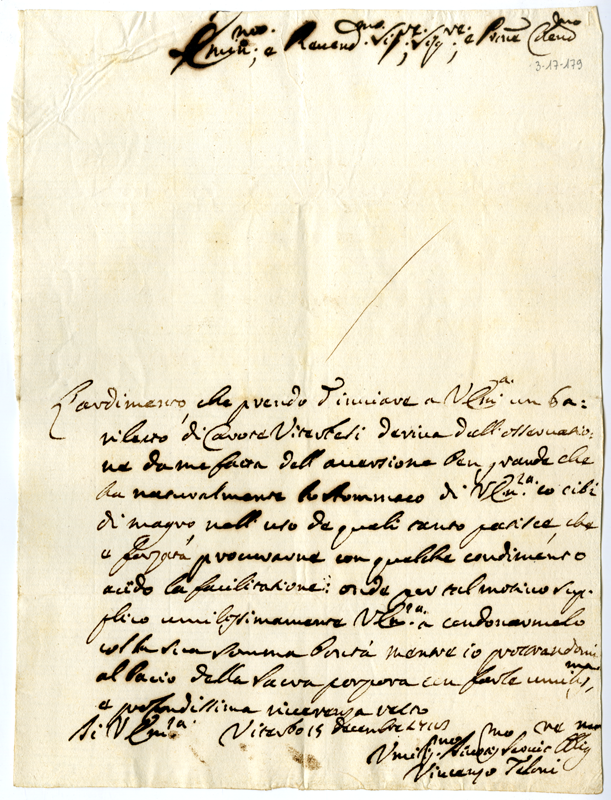 Emin.mo; e Reverend.mo Sig.re, Sig.re, e Prone Colend.mo
3-17-179
L'ardimento, che prendo d'inviare a V. Em.a un ba:
riletto di Carote Viterbesi deriva dall'osservatio:
ne da me fatta dell'aversione ben grande che
ha naturalmente lo stommaco di V. Em.za co cibi
di magro nell'uso de quali tanto patisce, che
è forzata procurarne con qualche condimento
acido la facilitatione: onde per tal motivo sup:
plico umilissimamente V. Em.za a condonarmelo
colla sua somma bontà mentre io prostrandomi
al bacio della Sacra porpora con farle umilis.ma,
e profondissima riverenza resto
Di V. Em.za Viterbo 15 decembre
Umiliss.mo Oblig
Vincenzo Teloni